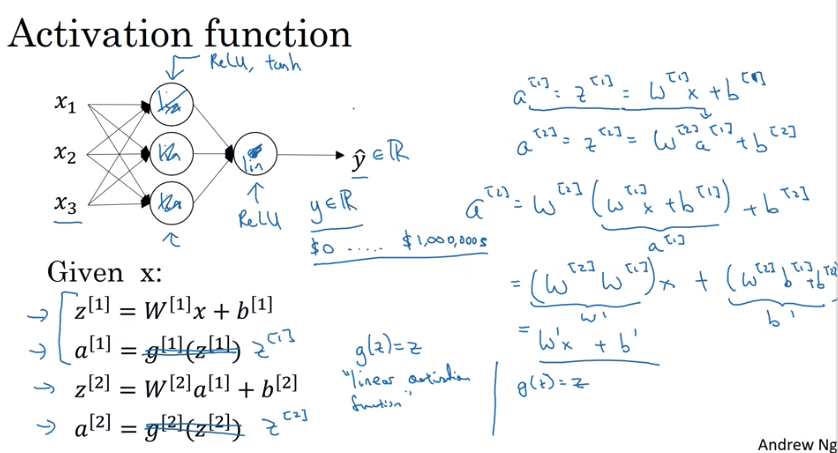 Activation function
ReLU, tanh
x₁
x₂
x₃
lin
ŷ ∈ ℝ
ReLU
y ∈ ℝ
$0 ..... $1,000,000s
Given x:
z[1] = W[1]x + b[1]
a[1] = g[1](z[1]) z[1]
z[2] = W[2]a[1] + b[2]
a[2] = g[2](z[2]) z[2]
g(z) = z
"linear activation
function"
a[1] = z[1] = W[1]x + b[1]
a[2] = z[2] = W[2]a[1] + b[2]
a[2] = W[2](W[1]x + b[1]) + b[2]
a[1]
= (W[2]W[1])x + (W[2]b[1] + b[2]
W' b'
= W'x + b'
g(z) = z
Andrew Ng